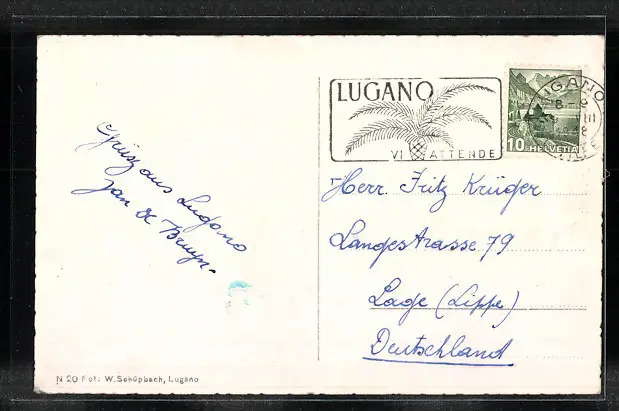 LUGANO
VI ATTENDE
10 HELVETIA
LUGANO
Gruss aus Lugano
Jan de Bruyn.
Herr. Fritz Krüger
Langestrasse 79
Lage (Lippe)
Deutschland
N 20 Fot: W. Schüpbach, Lugano